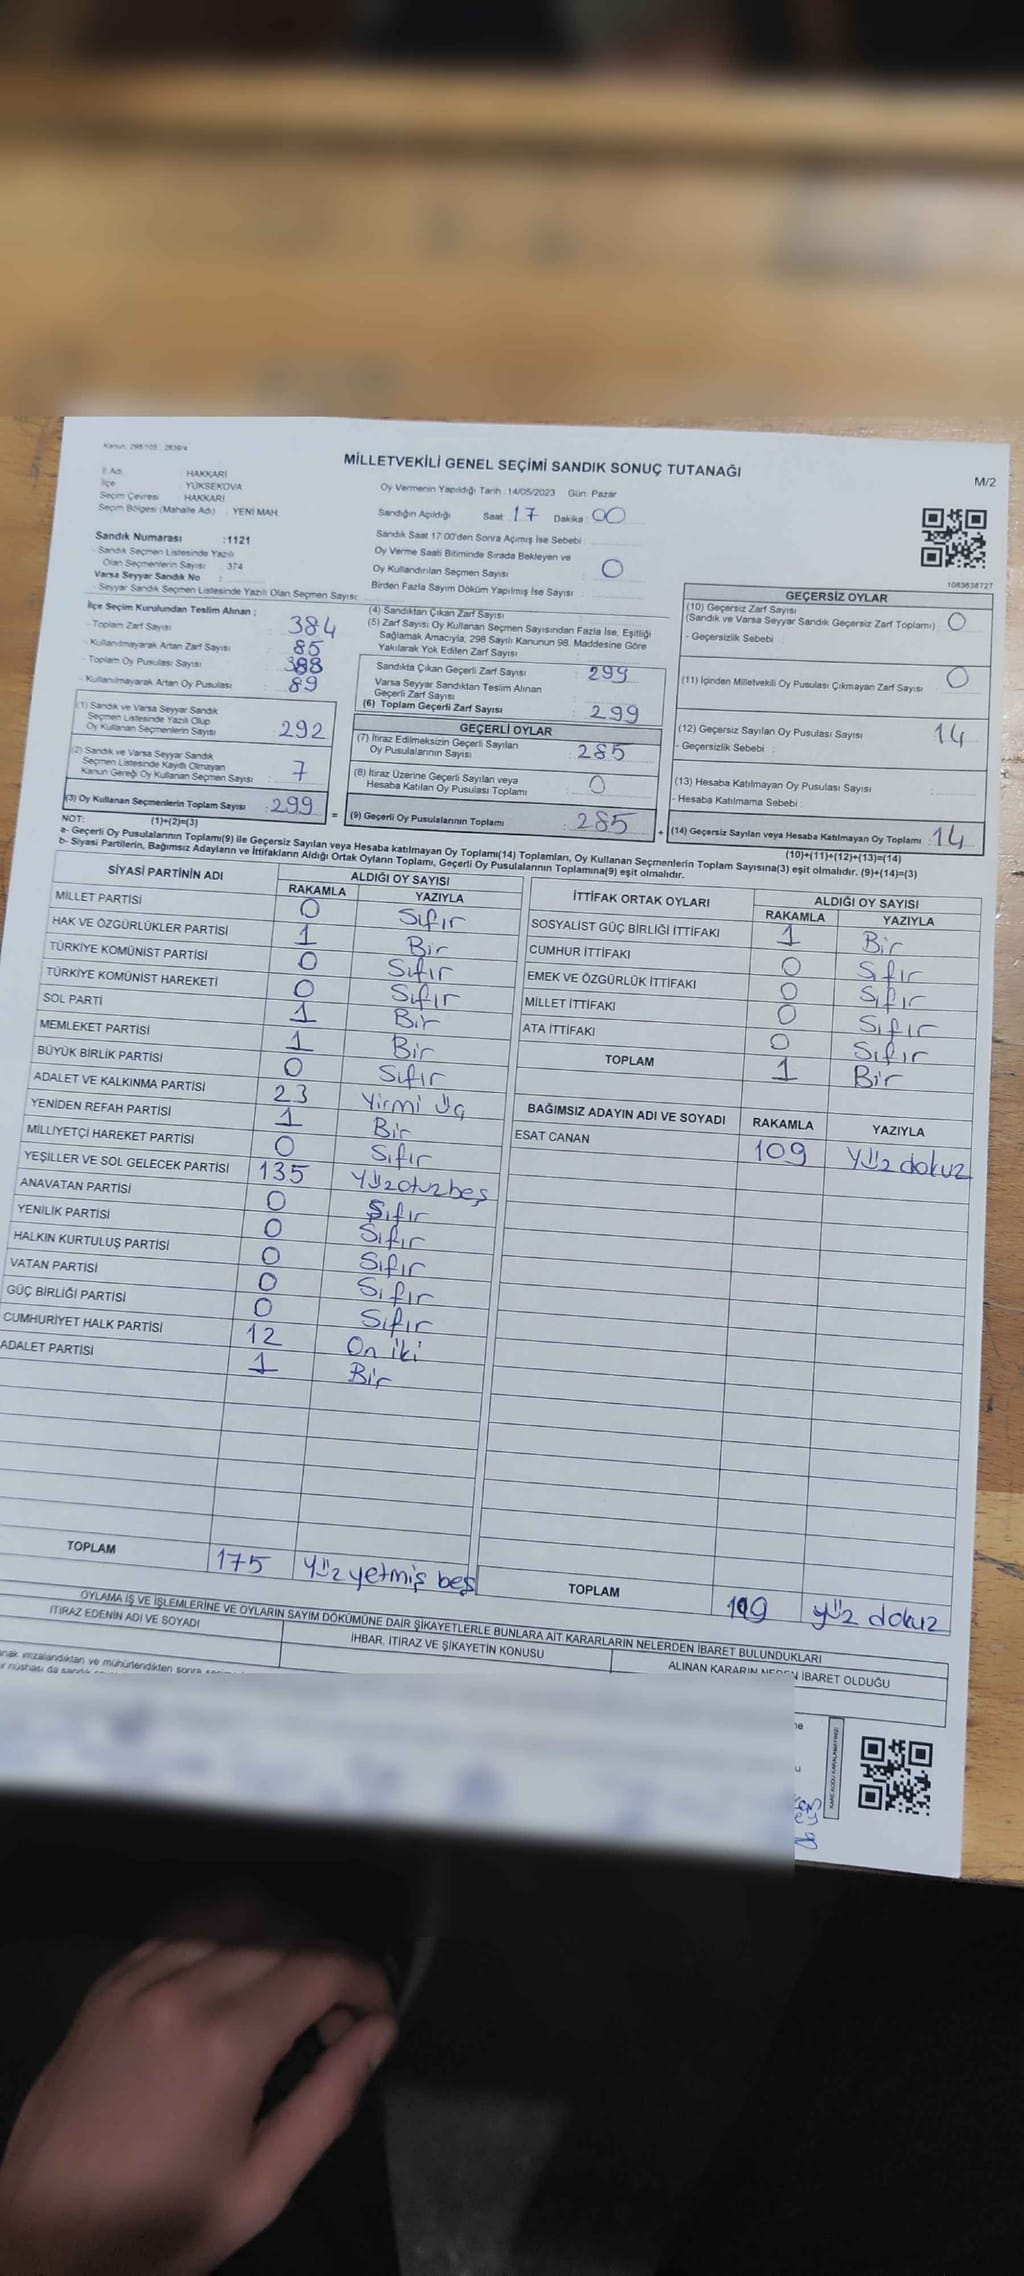 Kanun: 298/105 2839/4
MİLLETVEKİLİ GENEL SEÇİMİ SANDIK SONUÇ TUTANAĞI
M/2
İl Adı HAKKARİ
İlçe YÜKSEKOVA
Seçim Çevresi HAKKARİ
Seçim Bölgesi (Mahalle Adı) : YENİ MAH.
Oy Vermenin Yapıldığı Tarih : 14/05/2023 Gün: Pazar
Sandığın Açıldığı Saat 17 Dakika 00
Sandık Saat 17:00'den Sonra Açımış İse Sebebi :
Oy Verme Saati Bitiminde Sırada Bekleyen ve
Oy Kullandırılan Seçmen Sayısı : 0
Birden Fazla Sayım Döküm Yapılmış İse Sayısı :
Sandık Numarası :1121
- Sandık Seçmen Listesinde Yazılı
Olan Seçmenlerin Sayısı : 374
Varsa Seyyar Sandık No :
- Seyyar Sandık Seçmen Listesinde Yazılı Olan Seçmen Sayısı:
1083638727
İlçe Seçim Kurulundan Teslim Alınan ;
- Toplam Zarf Sayısı : 384
- Kullanılmayarak Artan Zarf Sayısı : 85
- Toplam Oy Pusulası Sayısı : 388
- Kullanılmayarak Artan Oy Pusulası : 89
(1) Sandık ve Varsa Seyyar Sandık
Seçmen Listesinde Yazılı Olup
Oy Kullanan Seçmenlerin Sayısı : 292
(2) Sandık ve Varsa Seyyar Sandık
Seçmen Listesinde Kayıtlı Olmayan
Kanun Gereği Oy Kullanan Seçmen Sayısı : 7
(3) Oy Kullanan Seçmenlerin Toplam Sayısı : 299
(1)+(2)=(3)
(4) Sandıktan Çıkan Zarf Sayısı :
(5) Zarf Sayısı Oy Kullanan Seçmen Sayısından Fazla İse, Eşitliği
Sağlamak Amacıyla; 298 Sayılı Kanunun 98. Maddesine Göre
Yakılarak Yok Edilen Zarf Sayısı :
Sandıkta Çıkan Geçerli Zarf Sayısı : 299
Varsa Seyyar Sandıktan Teslim Alınan
Geçerli Zarf Sayısı :
(6) Toplam Geçerli Zarf Sayısı : 299
GEÇERLİ OYLAR
(7) İtiraz Edilmeksizin Geçerli Sayılan
Oy Pusulalarının Sayısı : 285
(8) İtiraz Üzerine Geçerli Sayılan veya
Hesaba Katılan Oy Pusulası Toplamı : 0
= (9) Geçerli Oy Pusulalarının Toplamı : 285 +
GEÇERSİZ OYLAR
(10) Geçersiz Zarf Sayısı
(Sandık ve Varsa Seyyar Sandık Geçersiz Zarf Toplamı) : 0
- Geçersizlik Sebebi :
(11) İçinden Milletvekili Oy Pusulası Çıkmayan Zarf Sayısı : 0
(12) Geçersiz Sayılan Oy Pusulası Sayısı : 14
- Geçersizlik Sebebi :
(13) Hesaba Katılmayan Oy Pusulası Sayısı :
- Hesaba Katılmama Sebebi :
(14) Geçersiz Sayılan veya Hesaba Katılmayan Oy Toplamı : 14
(10)+(11)+(12)+(13)=(14)
NOT:
a- Geçerli Oy Pusulalarının Toplamı(9) ile Geçersiz Sayılan veya Hesaba katılmayan Oy Toplamı(14) Toplamları, Oy Kullanan Seçmenlerin Toplam Sayısına(3) eşit olmalıdır. (9)+(14)=(3)
b- Siyasi Partilerin, Bağımsız Adayların ve İttifakların Aldığı Ortak Oyların Toplamı, Geçerli Oy Pusulalarının Toplamına(9) eşit olmalıdır.
SİYASİ PARTİNİN ADI ALDIĞI OY SAYISI
RAKAMLA YAZIYLA
MİLLET PARTİSİ 0 Sıfır
HAK VE ÖZGÜRLÜKLER PARTİSİ 1 Bir
TÜRKİYE KOMÜNİST PARTİSİ 0 Sıfır
TÜRKİYE KOMÜNİST HAREKETİ 0 Sıfır
SOL PARTİ 1 Bir
MEMLEKET PARTİSİ 1 Bir
BÜYÜK BİRLİK PARTİSİ 0 Sıfır
ADALET VE KALKINMA PARTİSİ 23 Yirmi Üç
YENİDEN REFAH PARTİSİ 1 Bir
MİLLİYETÇİ HAREKET PARTİSİ 0 Sıfır
YEŞİLLER VE SOL GELECEK PARTİSİ 135 Yüz otuz beş
ANAVATAN PARTİSİ 0 Sıfır
YENİLİK PARTİSİ 0 Sıfır
HALKIN KURTULUŞ PARTİSİ 0 Sıfır
VATAN PARTİSİ 0 Sıfır
GÜÇ BİRLİĞİ PARTİSİ 0 Sıfır
CUMHURİYET HALK PARTİSİ 12 On iki
ADALET PARTİSİ 1 Bir
TOPLAM 175 Yüz yetmiş beş
İTTİFAK ORTAK OYLARI ALDIĞI OY SAYISI
RAKAMLA YAZIYLA
SOSYALİST GÜÇ BİRLİĞİ İTTİFAKI 1 Bir
CUMHUR İTTİFAKI 0 Sıfır
EMEK VE ÖZGÜRLÜK İTTİFAKI 0 Sıfır
MİLLET İTTİFAKI 0 Sıfır
ATA İTTİFAKI 0 Sıfır
TOPLAM 1 Bir
BAĞIMSIZ ADAYIN ADI VE SOYADI RAKAMLA YAZIYLA
ESAT CANAN 109 Yüz dokuz
TOPLAM 109 yüz dokuz
OYLAMA İŞ VE İŞLEMLERİNE VE OYLARIN SAYIM DÖKÜMÜNE DAİR ŞİKAYETLERLE BUNLARA AİT KARARLARIN NELERDEN İBARET BULUNDUKLARI
İTİRAZ EDENİN ADI VE SOYADI
İHBAR, İTİRAZ VE ŞİKAYETİN KONUSU
ALINAN KARARIN NEDEN İBARET OLDUĞU
imzalandıktan ve mühürlendikten sonra
nüshası da sandık
KARE KODU KARALAMAYINIZ!